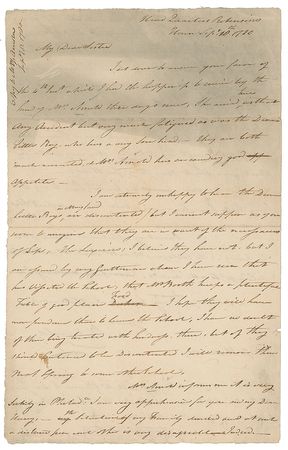 Head Quarters Robinsons
House Sepr. 10th 1780
My Dear Sister
your favor of
the 4th Inst. which I had the happiness to receive by the
hand of Mrs. Arnold three days since, She arrived without
Any Accident but very much fatigued as was the Dear
Little Boy, who has a very sore head — They are both
much recovered & Mrs. Arnold has an exceeding good
Appetite —
I am extremely unhappy to hear the Dear
Little Boys in Maryland are discontented, but I cannot suppose as you
seem to imagine that they are in want of the necessaries
of Life, the Luxuries, I believe they have not. but I
am assured by any Gentleman whom I have seen that
has visited the School, that Mr. Booth keeps a plentiful
Table of good plain Food I hope they will have
no reason from them to leave the School, I have no doubt
of their being treated with tenderness there, but if they
should continue to be discontented I will remove them
Next Spring to some other School.
Mrs. Arnold informs me it is very
Sickly in Philada. I am very apprehensive for you and my Dear
Henry,
my Family divided and at such
a distance from each other is very disagreeable Indeed.